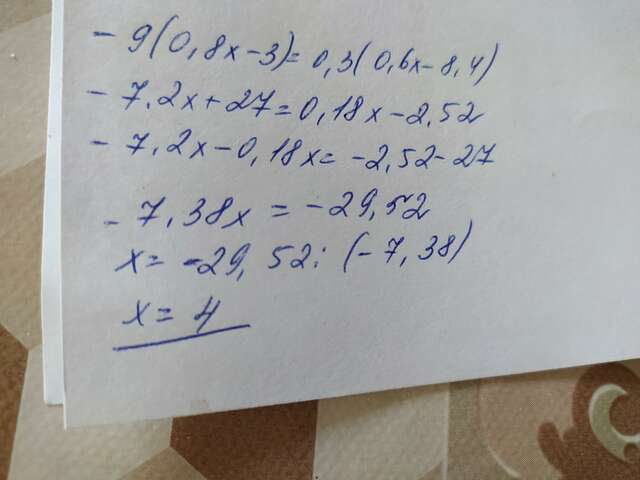 - 9(0,8x-3)=0,3(0,6x-8,4)
- 7,2x+27=0,18x-2,52
- 7,2x-0,18x=-2,52-27
- 7,38x=-29,52
x=-29,52:(-7,38)
x=4